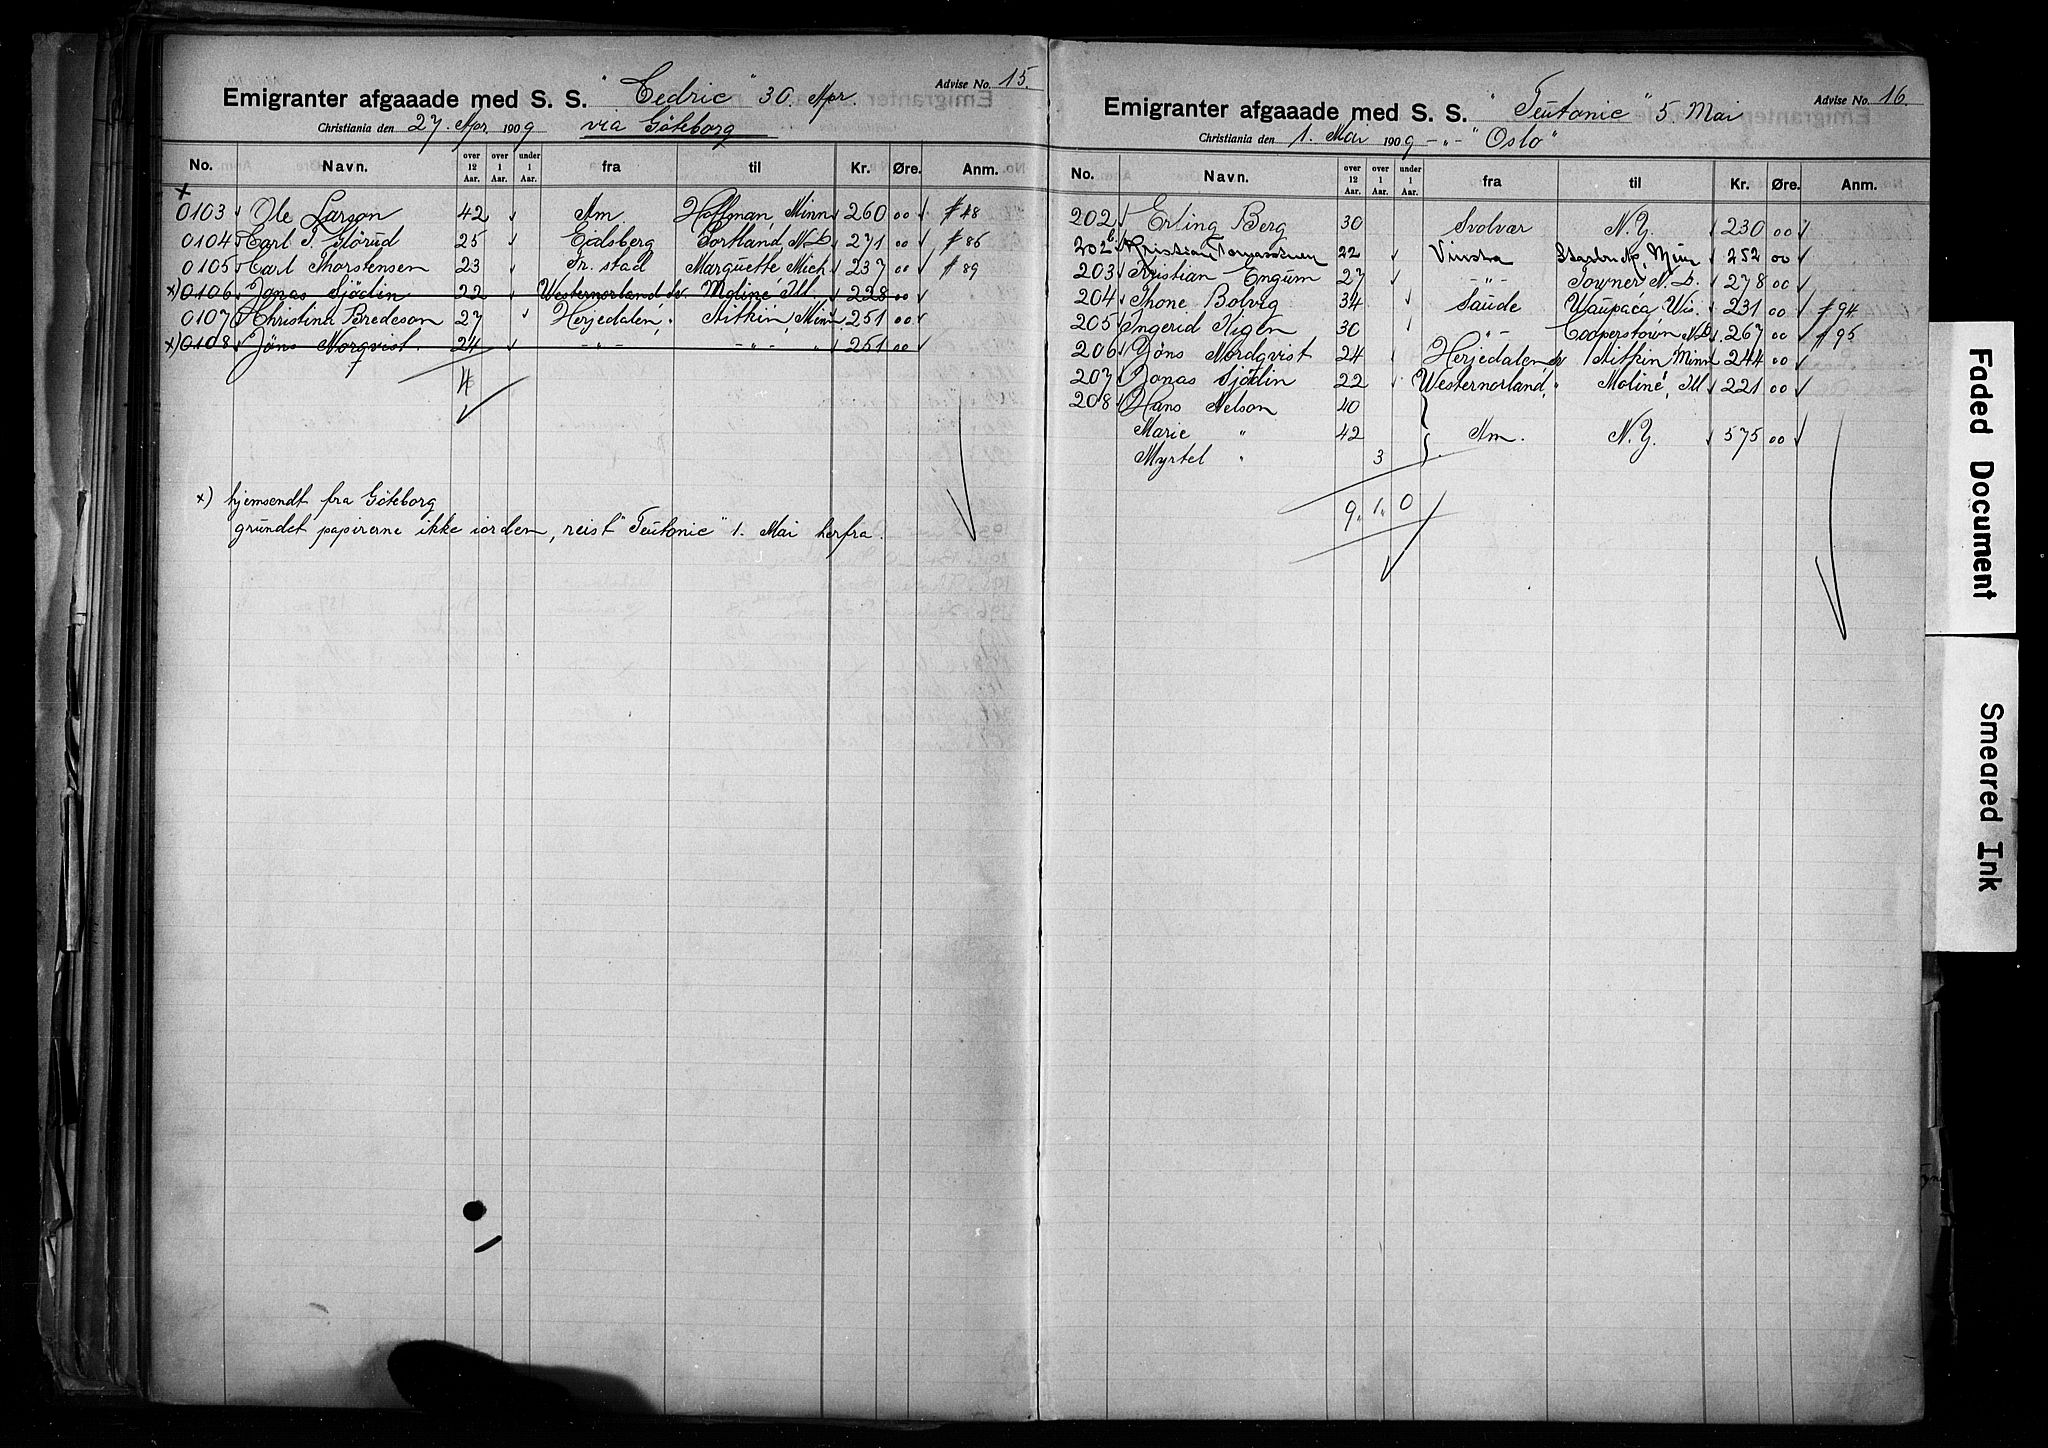 Advise No. 15.
Emigranter afgaaade med S. S. "Cedric" 30 Apr.
Christiania den 27. Apr. 1909 via Göteborg
No. Navn. over 12 Aar. over 1 Aar. under 1 Aar. fra til Kr. Øre. Anm.
x
0103 Ole Larson 42 Am. Hoffman, Minn 260 00 # 48
0104 Carl T. Glörud 25 Eidsberg Portland, N.D. 271 00 # 86
0105 Carl Thorstensen 23 Fr. stad Marquette Mich 237 00 # 89
x) 0106 Jonas Sjödin 22 Westernorland Sv Moline Ill. 228 00
0107 Christina Bredeson 27 Herjedalen " Aitkin, Minn 251 00
x) 0108 Jöns Norqvist 24 -"- -"- 251 00
4
x) hjemsendt fra Göteborg
grundet papirerne ikke iorden, reist "Teutonic" 1. Mai herfra.
Advise No. 16.
Emigranter afgaaade med S. S. "Teutonic" 5 Mai
Christiania den 1. Mai 1909 -"- "Oslo"
No. Navn. over 12 Aar. over 1 Aar. under 1 Aar. fra til Kr. Øre. Anm.
202 Erling Berg 30 Svolvær N.Y. 230 00
202b Kristian 22 Vinstra Minn 252 00
203 Kristian Engum 27 -"- Towner N.D. 278 00
204 Thone Bolvig 34 Saude Waupaca Wis. 231 00 # 94
205 Ingerid Tigen 30 -"- Cooperstown, N.D. 267 00 # 95
206 Jöns Nordqvist 24 Herjedalen Sv Aitkin Minn 244 00
207 Jonas Sjödin 22 Westernorland, " Moline, Ill 221 00
208 Hans Nelson 40
Marie " 42 Am. N.Y. 575 00
Myrtel " 3
9, 1, 0
Faded Document
Smeared Ink